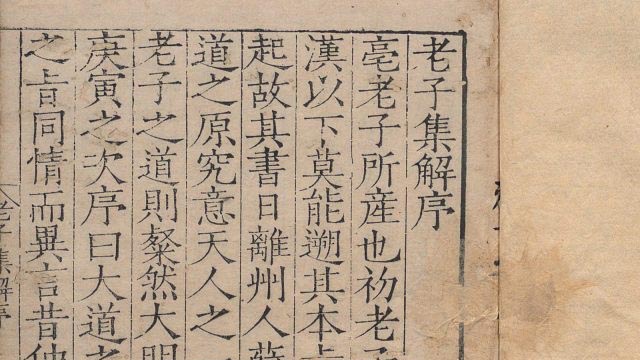 老子集解序
亳老子所產也初老子
漢以下莫能遡其本
起故其書日離州人薛
道之原究意天人之
老子之道則粲然大明
庚寅之次序曰大道之
之旨同情而異言昔仲
老子集解序